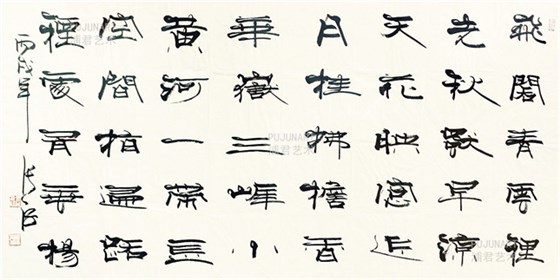 飛閣青雲裡
先秋獨早涼
天花映窗近
月桂拂檐香
華嶽三峰小
黃河一帶長
空間指歸路
煙處有垂楊
丙戌年